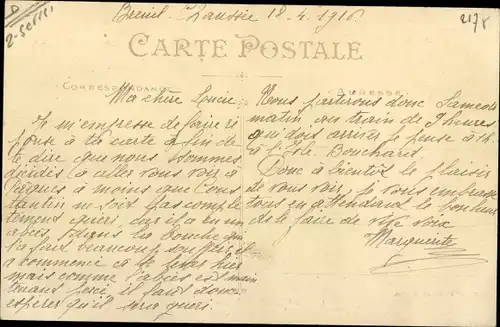 18.4.1916
2178
CARTE POSTALE
CORRESPONDANCE
ADRESSE
Ma chère Loucie.
Je m'empresse de faire ré
ponse à ta carte afin de
te dire que nous sommes
décidés à aller vous voir à
Pâques à moins que Cons
tantin ne soit pas complè
tement guéri, car il a eu un
abcès dans la bouche qui
l'a fait beaucoup souffrir, il
a commencé à le hier
mais comme l'abcès est main
tenant percé il faut donc
espérer qu'il sera guéri.
Nous partirons donc Samedi
matin au train de 9 heures
qui doit arriver je pense à
à l'Ile Bouchard.
Donc à bientôt le plaisir
de vous voir, je vous embrasse
tous en attendant le bonheur
de le faire de vive voix
Marguerite